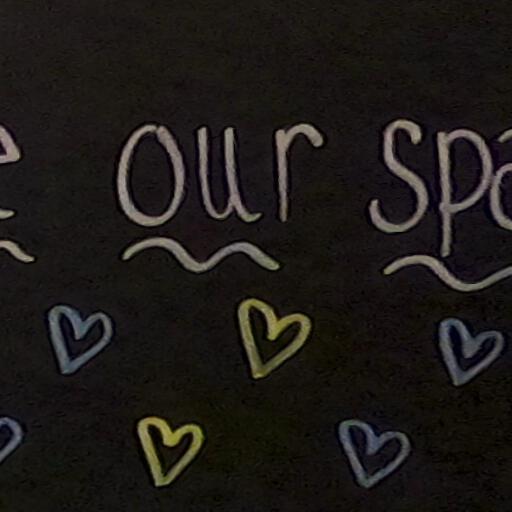 e our spa